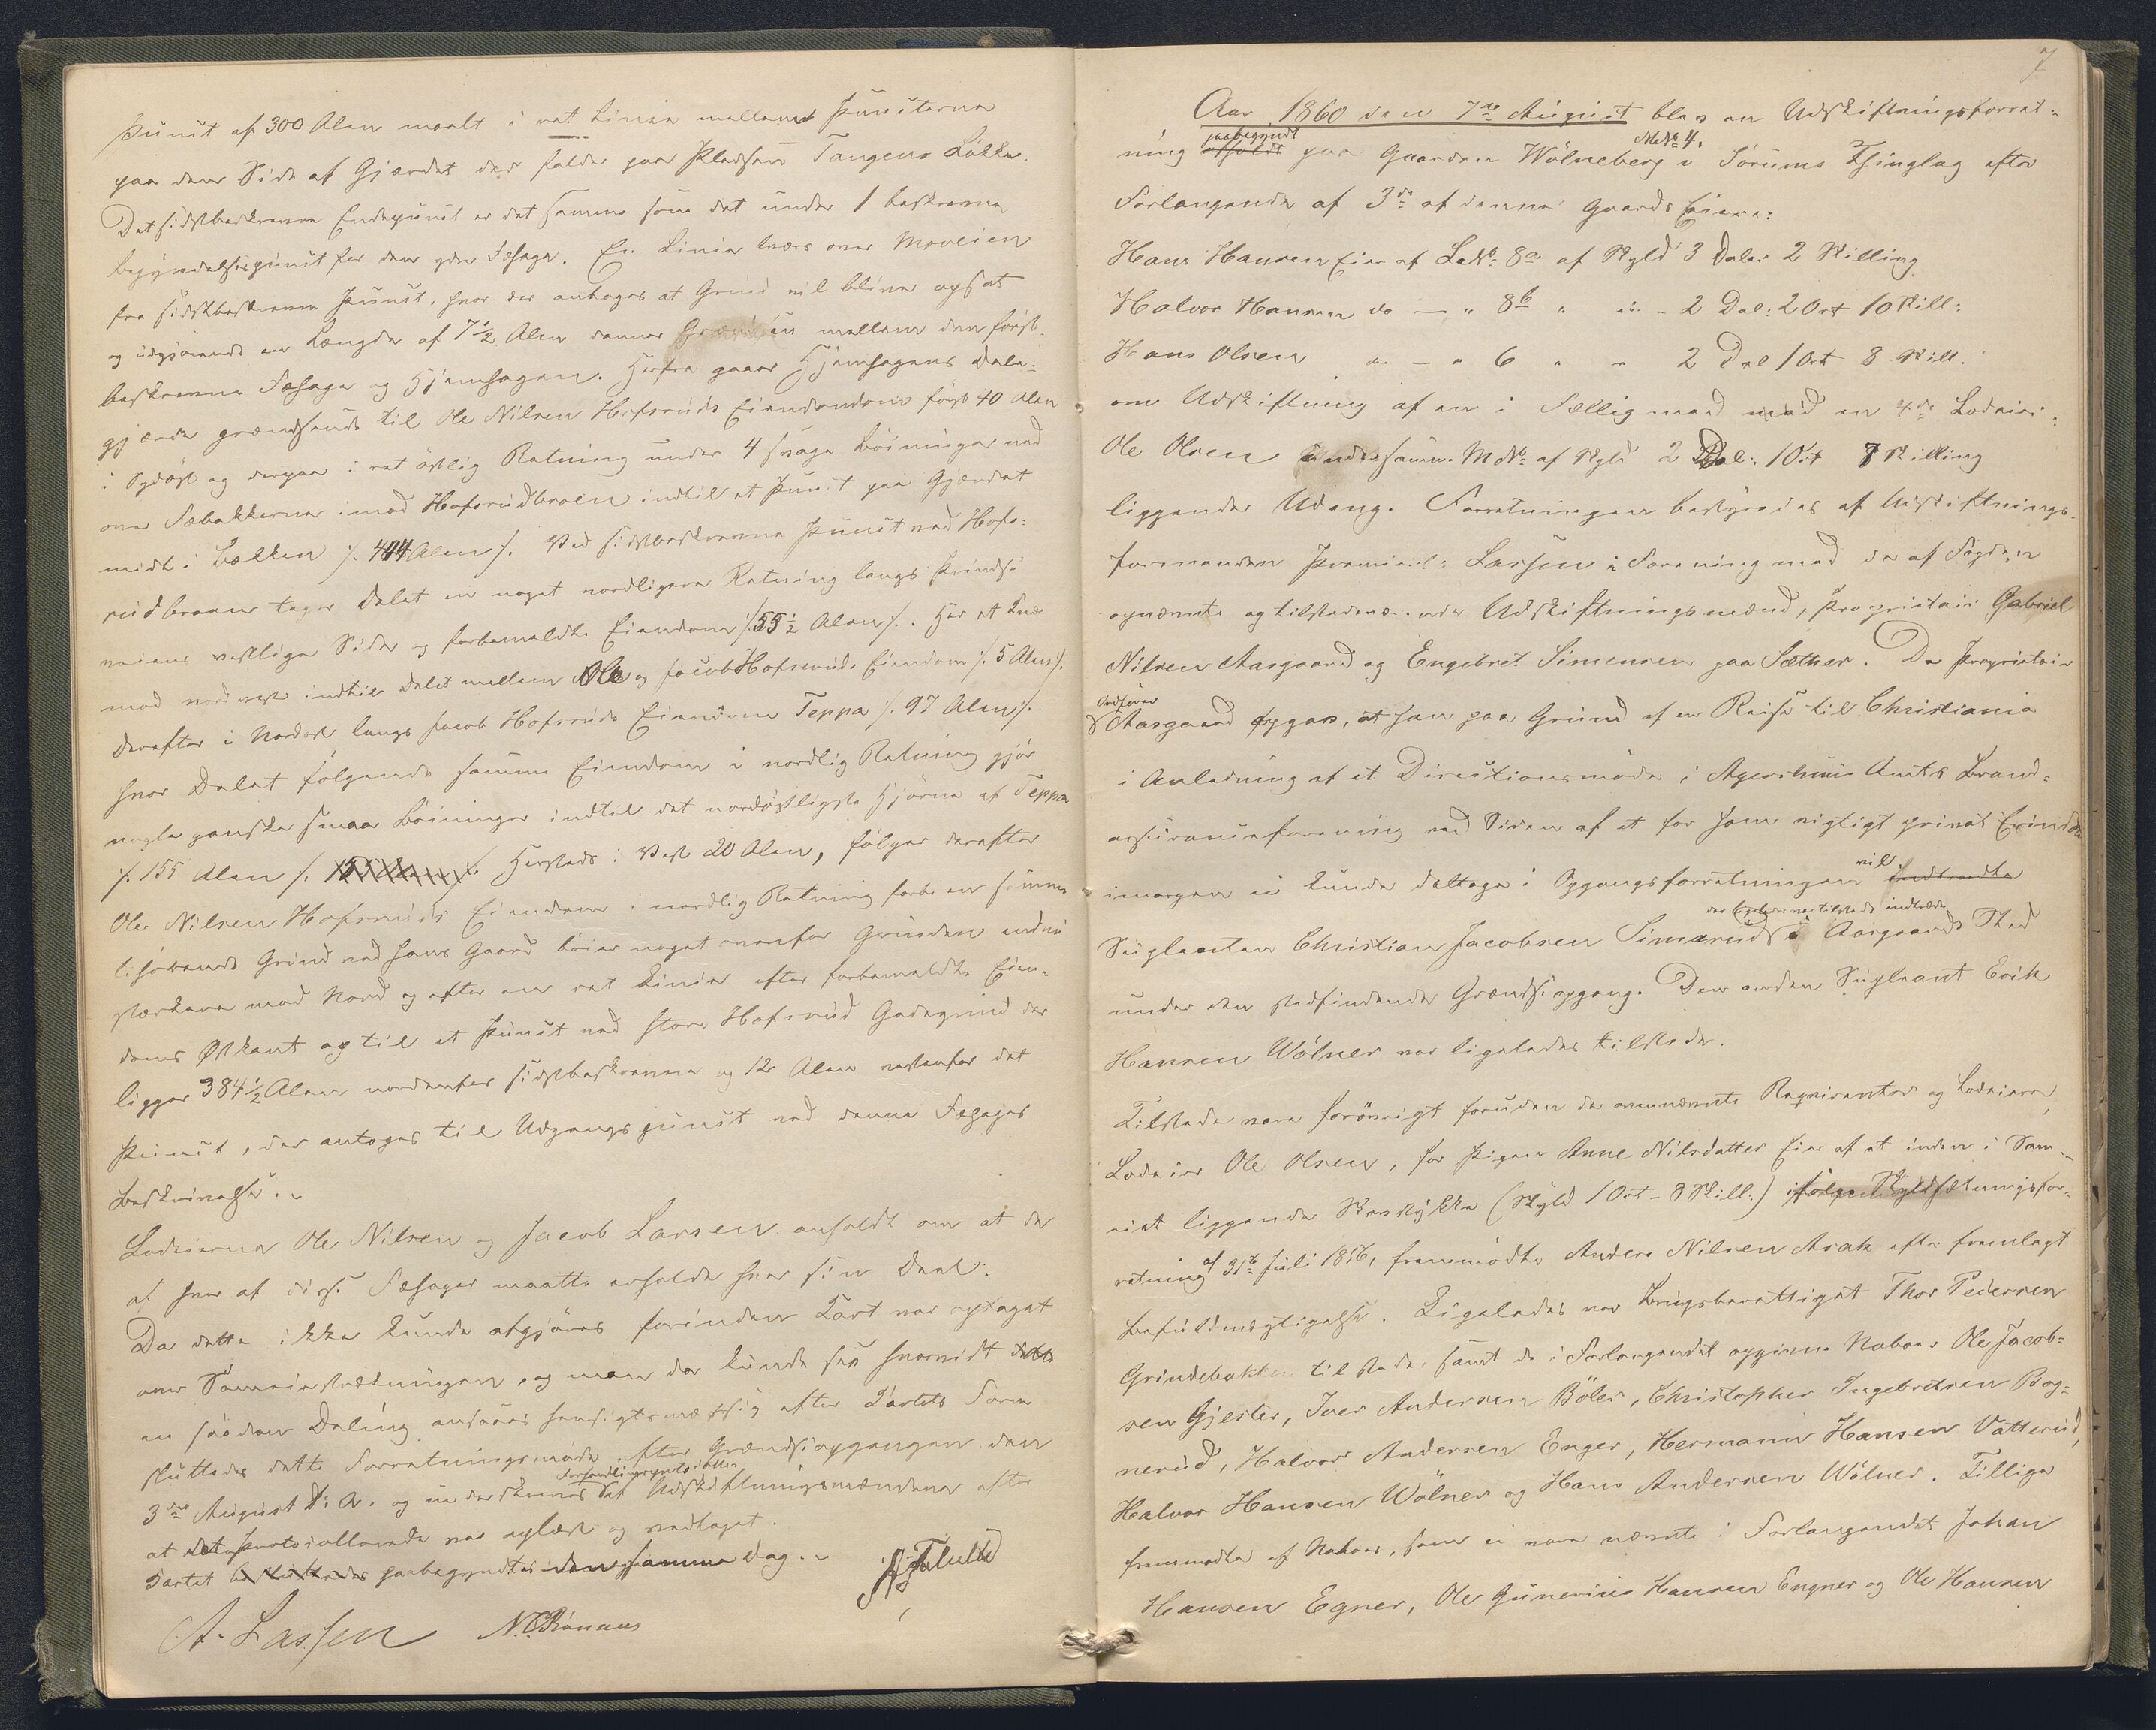 Punct af 300 Alen maalt i ret Linie mellem Puncterne
paa den Side af Gjerdet der falder paa Pladsen Tangens Løkke.
Det sidstbeskrevne Endepunct er det samme som det under 1 beskrevne
Begyndelsespunct for den ydre Fægage. En Linie tvers over Moveien
fra sidstbeskrevne Punct, hvor der antages at Grind vil blive opsat
og udgjørende en Længde af 7 1/2 Alen danner Grændsen mellem den først-
beskrevne Fægage og Hjemhagen. Herfra gaaer Hjemhagens Dele-
gjerde grændsende til Ole Nilsen Hofsruds Eiendom først 40 Alen
i Sydøst og derpaa i ret østlig Retning under 4 svage Bøininger ned
over Fæbakkerne imod Hofsrudbroen indtil et Punct paa Gjerdet
midt i Bækken /: 404 Alen /: Ved sidstbeskrevne Punct ved Hofs-
rudbroen tager Delet en noget nordligere Retning langs
veiens vestlige Side og forbemeldte Eiendom /: 55 1/2 Alen /: Her et Knæ
mod nordvest indtil Delet mellem Ole og Jacob Hofsruds Eiendom /: 5 Alen /:
derefter i Nordost langs Jacob Hofsruds Eiendom Teppa /: 97 Alen /:
hvor Delet følgende samme Eiendom i nordlig Retning gjør
nogle ganske smaa Bøininger indtil det nordøstligste Hjørne af Teppa
/: 155 Alen /: Herfra i Vest 20 Alen, følger derefter
Ole Nilsen Hofsruds Eiendom i nordlig Retning forbi en samme
tilhørende Grind ved hans Gaard bøier noget ovenfor Grinden endnu
stærkere mod Nord og efter en ret Linie efter forbemeldte Eien-
doms Østkant og til et Punct ved store Hofsrud Gadegrind der
ligger 384 1/2 Alen nordenfor sidstbeskrevne og 12 Alen vestenfor det
Punct, der antoges til Udgangspunct ved denne Fægages
Beskrivelse.
Lodeierne Ole Nilsen og Jacob Larsen anholdt om at de
af hver af disse Fæhager maatte erholde hver sin Deel.
Da dette ikke kunde afgjøres forinden Kart var optaget
over Sameiestrækningen, og man da kunde see hvorvidt
en saadan Deling ansaaes hensigtsmæssig efter Kartets Form
sluttedes dette Forretningsmøde efter Grændseopgangen den
3die August d: A. og underskrives af Udskiftningsmændene efter
at det Protocollerede var oplæst og vedtaget.
Kartet paabegyndtes den samme Dag.
A. Lassen
7
Aar 1860 den 7de August blev en Udskiftningsforret-
ning paabegyndt paa Gaarden Wölneberg MNo 4, i Sörums Thinglag efter
Forlangende af 3de af denne Gaards Eiere:
Hans Hansen Eier af LNo: 8a af Skyld 3 Daler 2 Skilling
Halvor Hansen do — " 8b " " - 2 Dal: 2 Ort 10 Skill:
Hans Olsen do — " 6 " - 2 Dal 1 Ort 8 Skill.
om Udskiftning af en i Fællig med med en 4de Lodeier:
Ole Olsen under samme MNo: af Skyld 2 Dal: 1 Ort 7 Skilling
liggende Udeng. Forretningen bestyredes af Udskiftnings-
formanden Lassen i Forening med de af Fogden
opnævnte og tilstedeværende Udskiftningsmænd, Proprietair Gabriel
Nilsen Aasgaard og Engebret Simensen paa Sæther. Da Proprietair
Ordfører
Aasgaard opgav, at han paa Grund af en Reise til Christiania
i Anledning af et Directionsmøde i Agershuus Amts Brand-
assuranceforening ved Siden af et for ham vigtigt privat Ærinde
imorgen ei kunde deltage i Opgangsforretningen vil indtræde
Supleanten Christian Jacobsen Simarud der ligeledes var tilstede indtræde i Aasgaards Sted
under den stedfindende Grændseopgang. Den anden Supleant Erik
Hansen Wölner var ligeledes tilstede.
Tilstede vare forøvrigt foruden de ovennævnte Reqvirenter og Lodeiere
Lodeier Ole Olsen, for Pigen Anne Nilsdatter Eier af et inden i Sam-
eiet liggende Skovstykke (Skyld 1 Ort - 8 Skill.) ifølge Skyldsætningsfor-
retning af 31te Juli 1856, fremmødte Anders Nilsen Asak efter fremlagt
Befuldmægtigelse. Ligeledes var Brugsberettiget Thor Pedersen
Grindebakken tilstede, samt de i Forlangendet opgivne Naboer Ole Jacob-
sen Gjester, Iver Andersen Böler, Christopher Ingebretsen Bog-
nerud, Halvor Andersen Enger, Hermann Hansen Vatterud,
Halvor Hansen Wölner og Hans Andersen Wölner. Tillige
fremmødte af Naboer, som ei vare nævnte i Forlangendet Johan
Hansen Egner, Ole Gunerius Hansen Engner og Ole Hansen